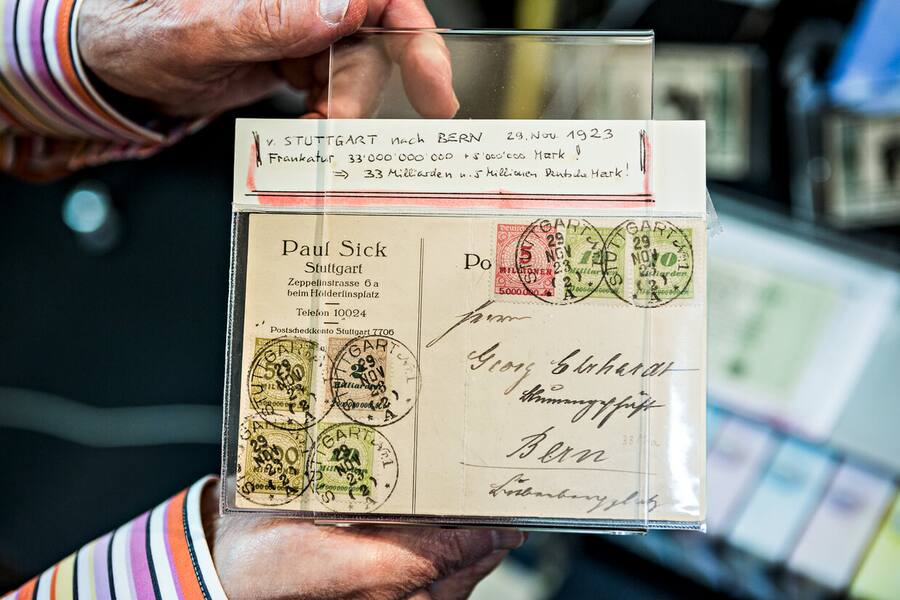 v. STUTTGART nach BERN 29. Nov. 1923
Frankatur 33'000'000'000 + 5'000'000 Mark!
⇒ 33 Milliarden u. 5 Millionen Deutsche Mark!
Paul Sick
Stuttgart
Zeppelinstrasse 6 a
beim Hölderlinsplatz
Telefon 10024
Postscheckkonto Stuttgart 7706
Po
5
MILLIONEN
5000000
10
Milliarden
STUTTGART
29
NOV
23
A
STUTTGART
29
NOV
23
A
Herrn
Georg Ehrhardt
Bern
STUTTGART
29
NOV
23
A
STUTTGART
29
NOV
23
A
500
STUTTGART
29
NOV
23
A
STUTTGART
29
NOV
23
A